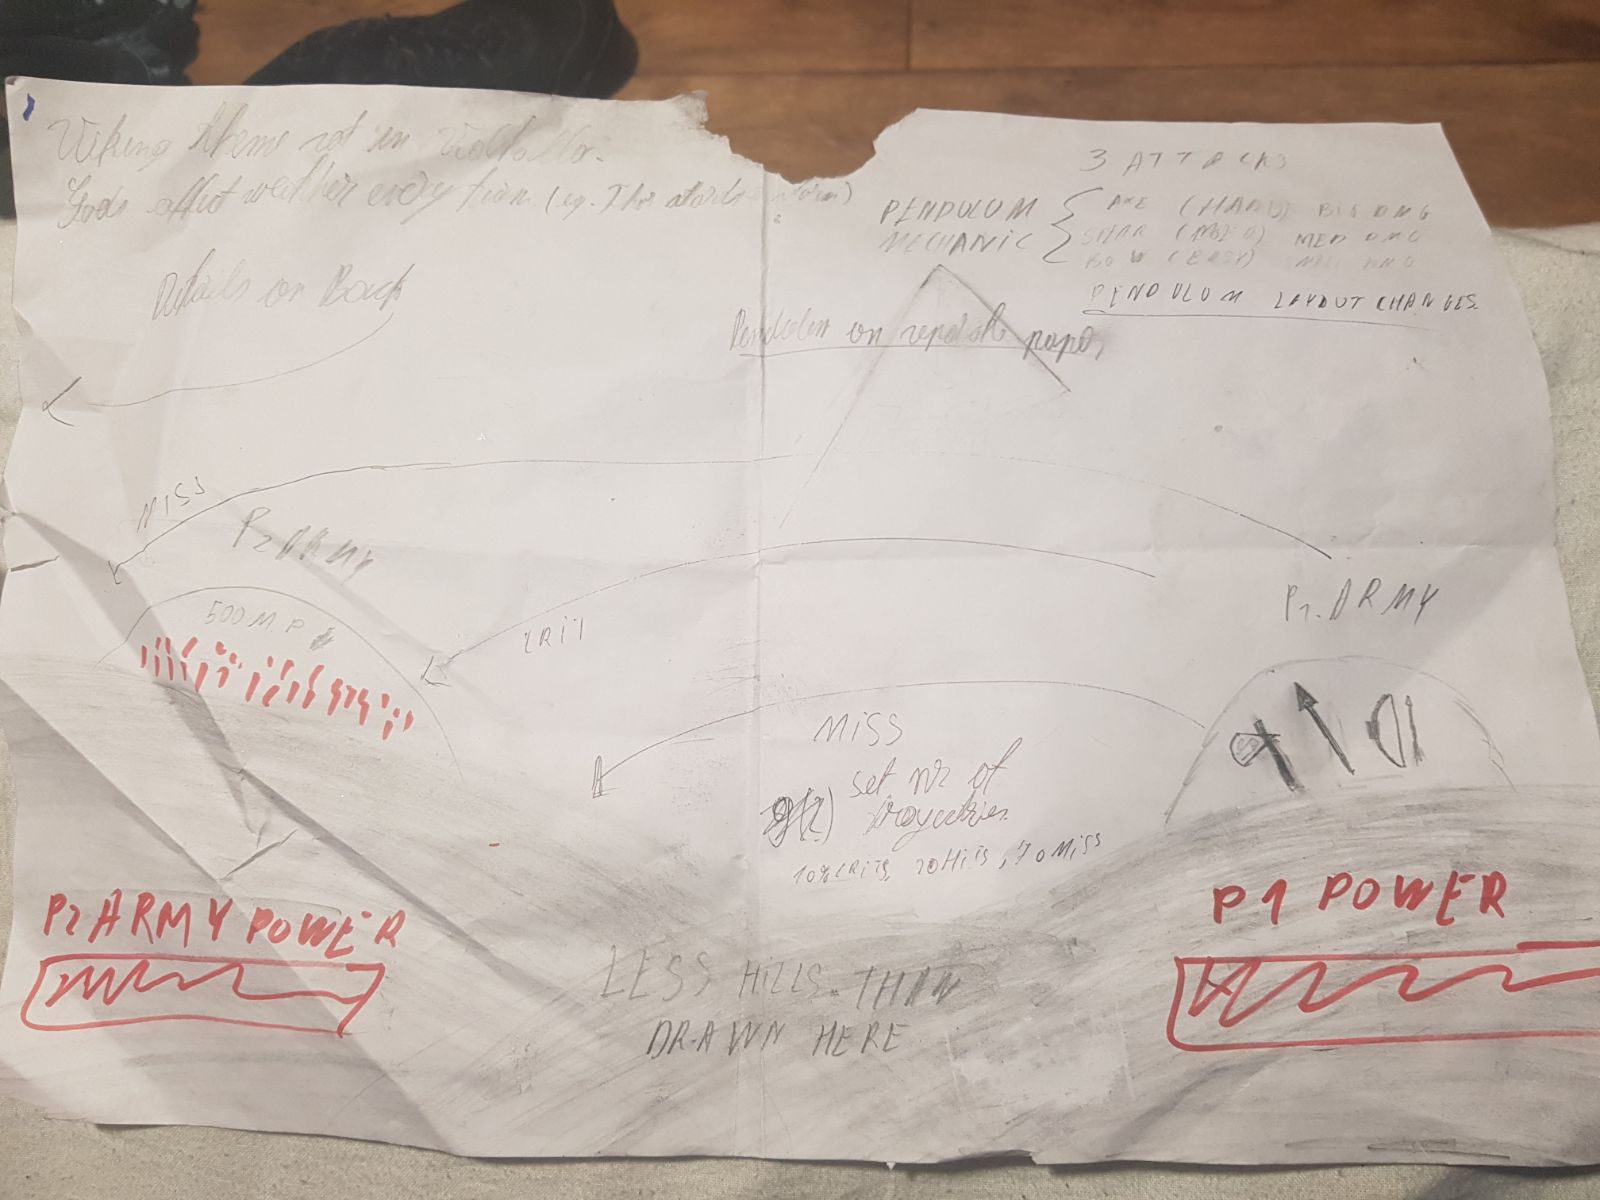 Viking theme set in Valhalla.
Gods affect weather every turn (eg. Thor starts storm)
Details on Back
3 ATTACKS
PENDULUM MECHANIC
AXE (HARD) BIG DMG
SPEAR MED DMG
BOW (EASY) SML DMG
PENDULUM LAYOUT CHANGES
on paper
MISS
P2 ARMY
500 M.P
CRIT
P1. ARMY
MISS
set nr of
10% CRITS, 20 HITS, 70 MISS
P2 ARMY POWER
P1 POWER
LESS HILLS THAN
DRAWN HERE